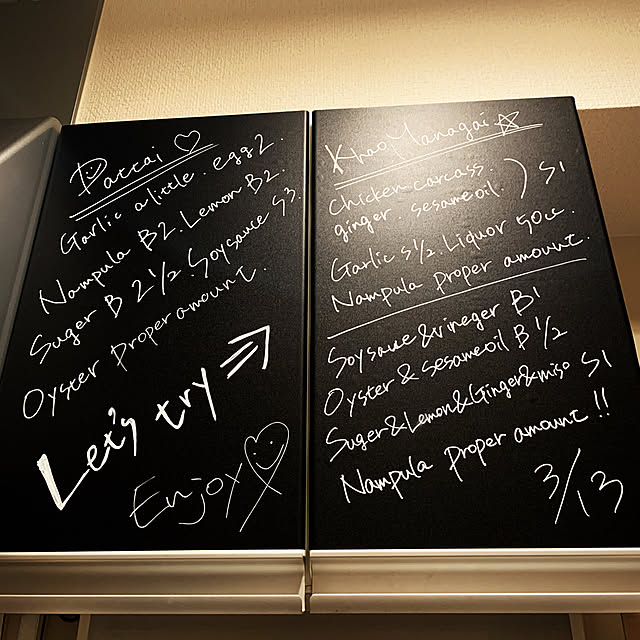 Pattai ♡
Garlic a little. egg 2.
Nampula B2. Lemon B2.
Suger B 2 1/2. Soysauce S3.
Oyster proper amount.
Let's try ⇒
Enjoy♡
Khao Managai ☆
Chicken carcass.
ginger. sesameoil. ) S1
Garlic S 1/2. Liquor 50cc.
Nampula proper amount.
Soysauce & vineger B1
Oyster & sesameoil B 1/2
Suger & Lemon & Ginger & miso S1
Nampula proper amount!!
3/13